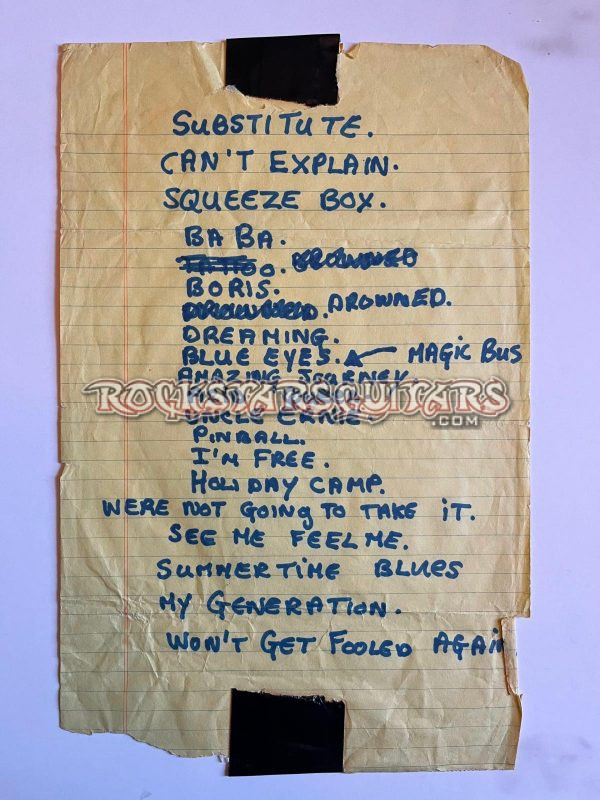 SUBSTITUTE.
CAN'T EXPLAIN.
SQUEEZE BOX.
BA BA.
TATTOO. DROWNED
BORIS.
DROWNED.
DREAMING.
BLUE EYES. MAGIC BUS
AMAZING JOURNEY.
ROCKSTARSGUITARS
.COM
UNCLE ERNIE
PINBALL.
I'M FREE.
HOLIDAY CAMP.
WERE NOT GOING TO TAKE iT.
SEE ME FEEL ME.
SUMMERTIME BLUES
MY GENERATION.
WON'T GET FOOLED AGAIN